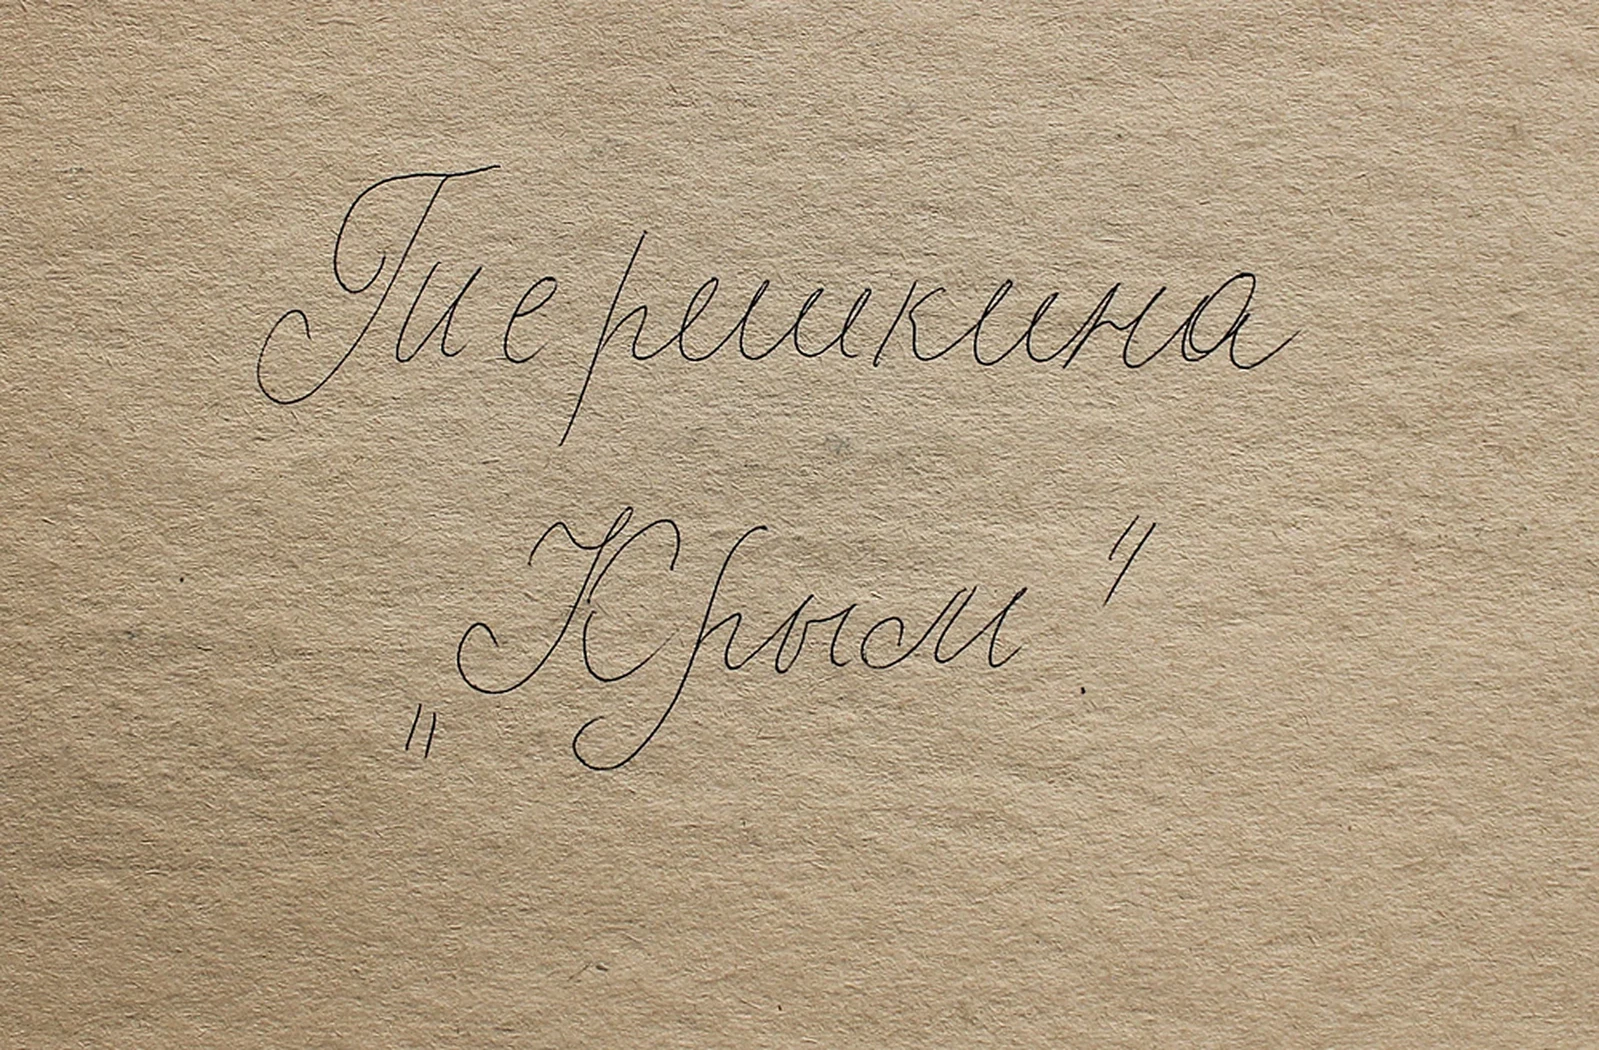 Терешкина
„Крым"